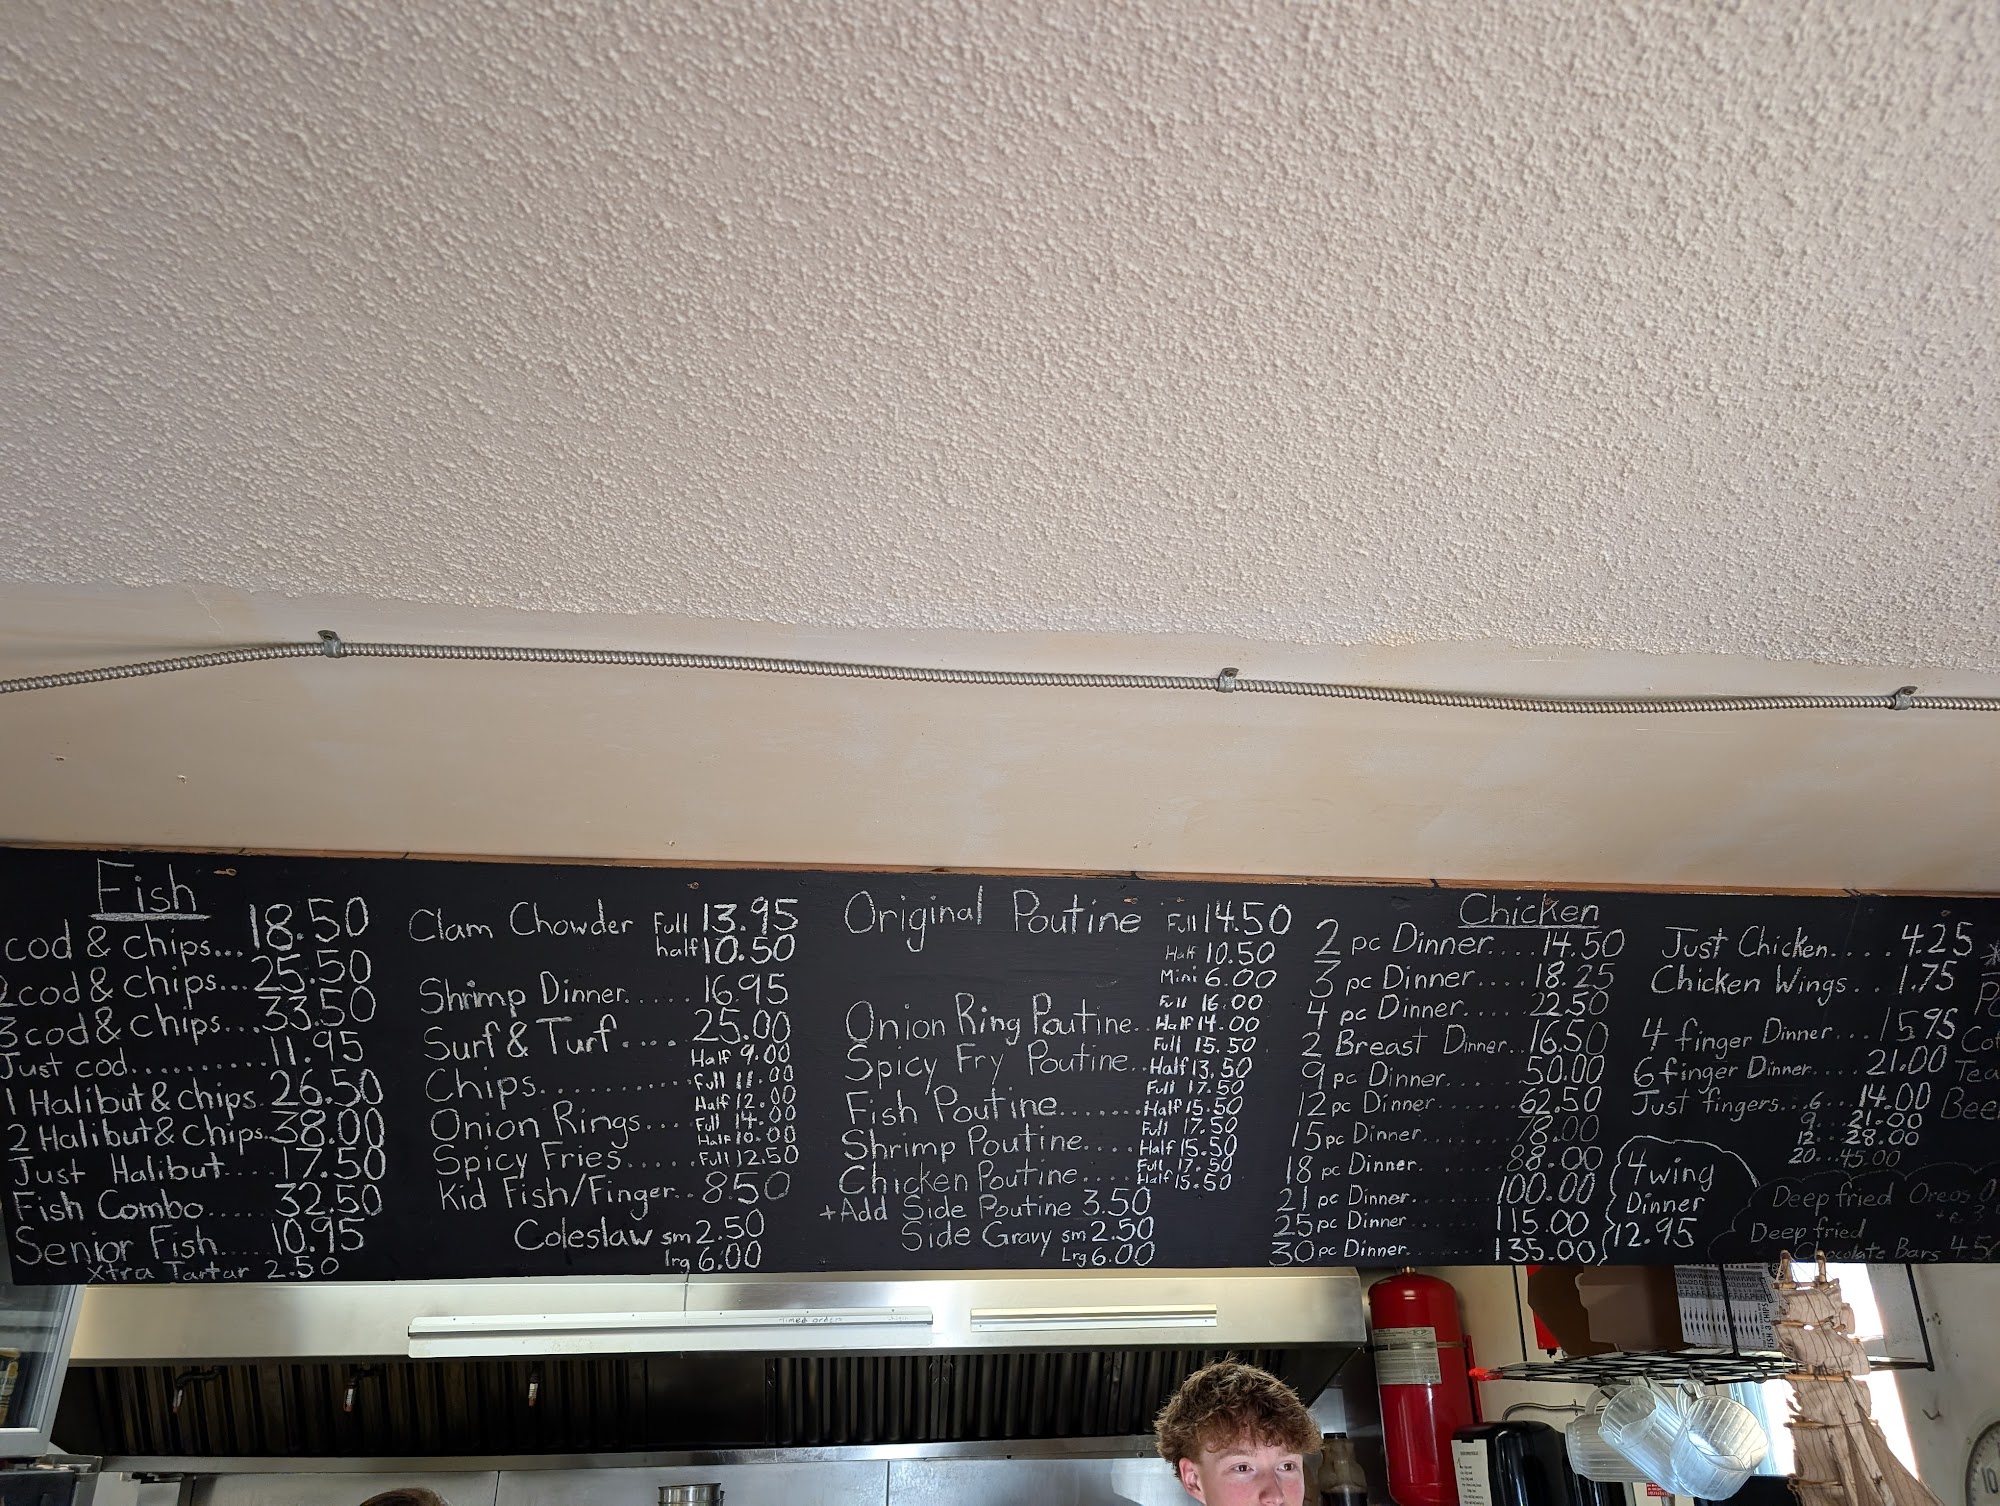 Fish
cod & chips... 18.50
2 cod & chips... 25.50
3 cod & chips... 33.50
Just cod........... 11.95
1 Halibut & chips. 26.50
2 Halibut & chips.. 38.00
Just Halibut.... 17.50
Fish Combo..... 32.50
Senior Fish.... 10.95
Xtra Tartar 2.50
Clam Chowder Full 13.95
half 10.50
Shrimp Dinner..... 16.95
Surf & Turf.... 25.00
Half 9.00
Chips.......... Full 11.00
Half 12.00
Onion Rings.... Full 14.00
Half 10.00
Spicy Fries..... Full 12.50
Kid Fish/Finger.. 8.50
Coleslaw sm 2.50
lrg 6.00
Original Poutine Full 14.50
Half 10.50
Mini 6.00
Full 16.00
Onion Ring Poutine.. Half 14.00
Full 15.50
Spicy Fry Poutine.. Half 13.50
Full 17.50
Fish Poutine....... Half 15.50
Full 17.50
Shrimp Poutine.... Half 15.50
Full 17.50
Chicken Poutine.... Half 15.50
+Add Side Poutine 3.50
Side Gravy sm 2.50
Lrg 6.00
Chicken
2 pc Dinner.... 14.50
3 pc Dinner.... 18.25
4 pc Dinner..... 22.50
2 Breast Dinner.. 16.50
9 pc Dinner...... 50.00
12 pc Dinner...... 62.50
15 pc Dinner...... 78.00
18 pc Dinner...... 88.00
21 pc Dinner...... 100.00
25 pc Dinner...... 115.00
30 pc Dinner...... 135.00
Just Chicken.... 4.25
Chicken Wings.. 1.75
4 finger Dinner... 15.95
6 finger Dinner.... 21.00
Just fingers...6... 14.00
9... 21.00
12... 28.00
20... 45.00
4 wing
Dinner
12.95
Deep fried Oreos
Deep fried
Chocolate Bars
Tea
timed orders
FISH & CHIPS
10